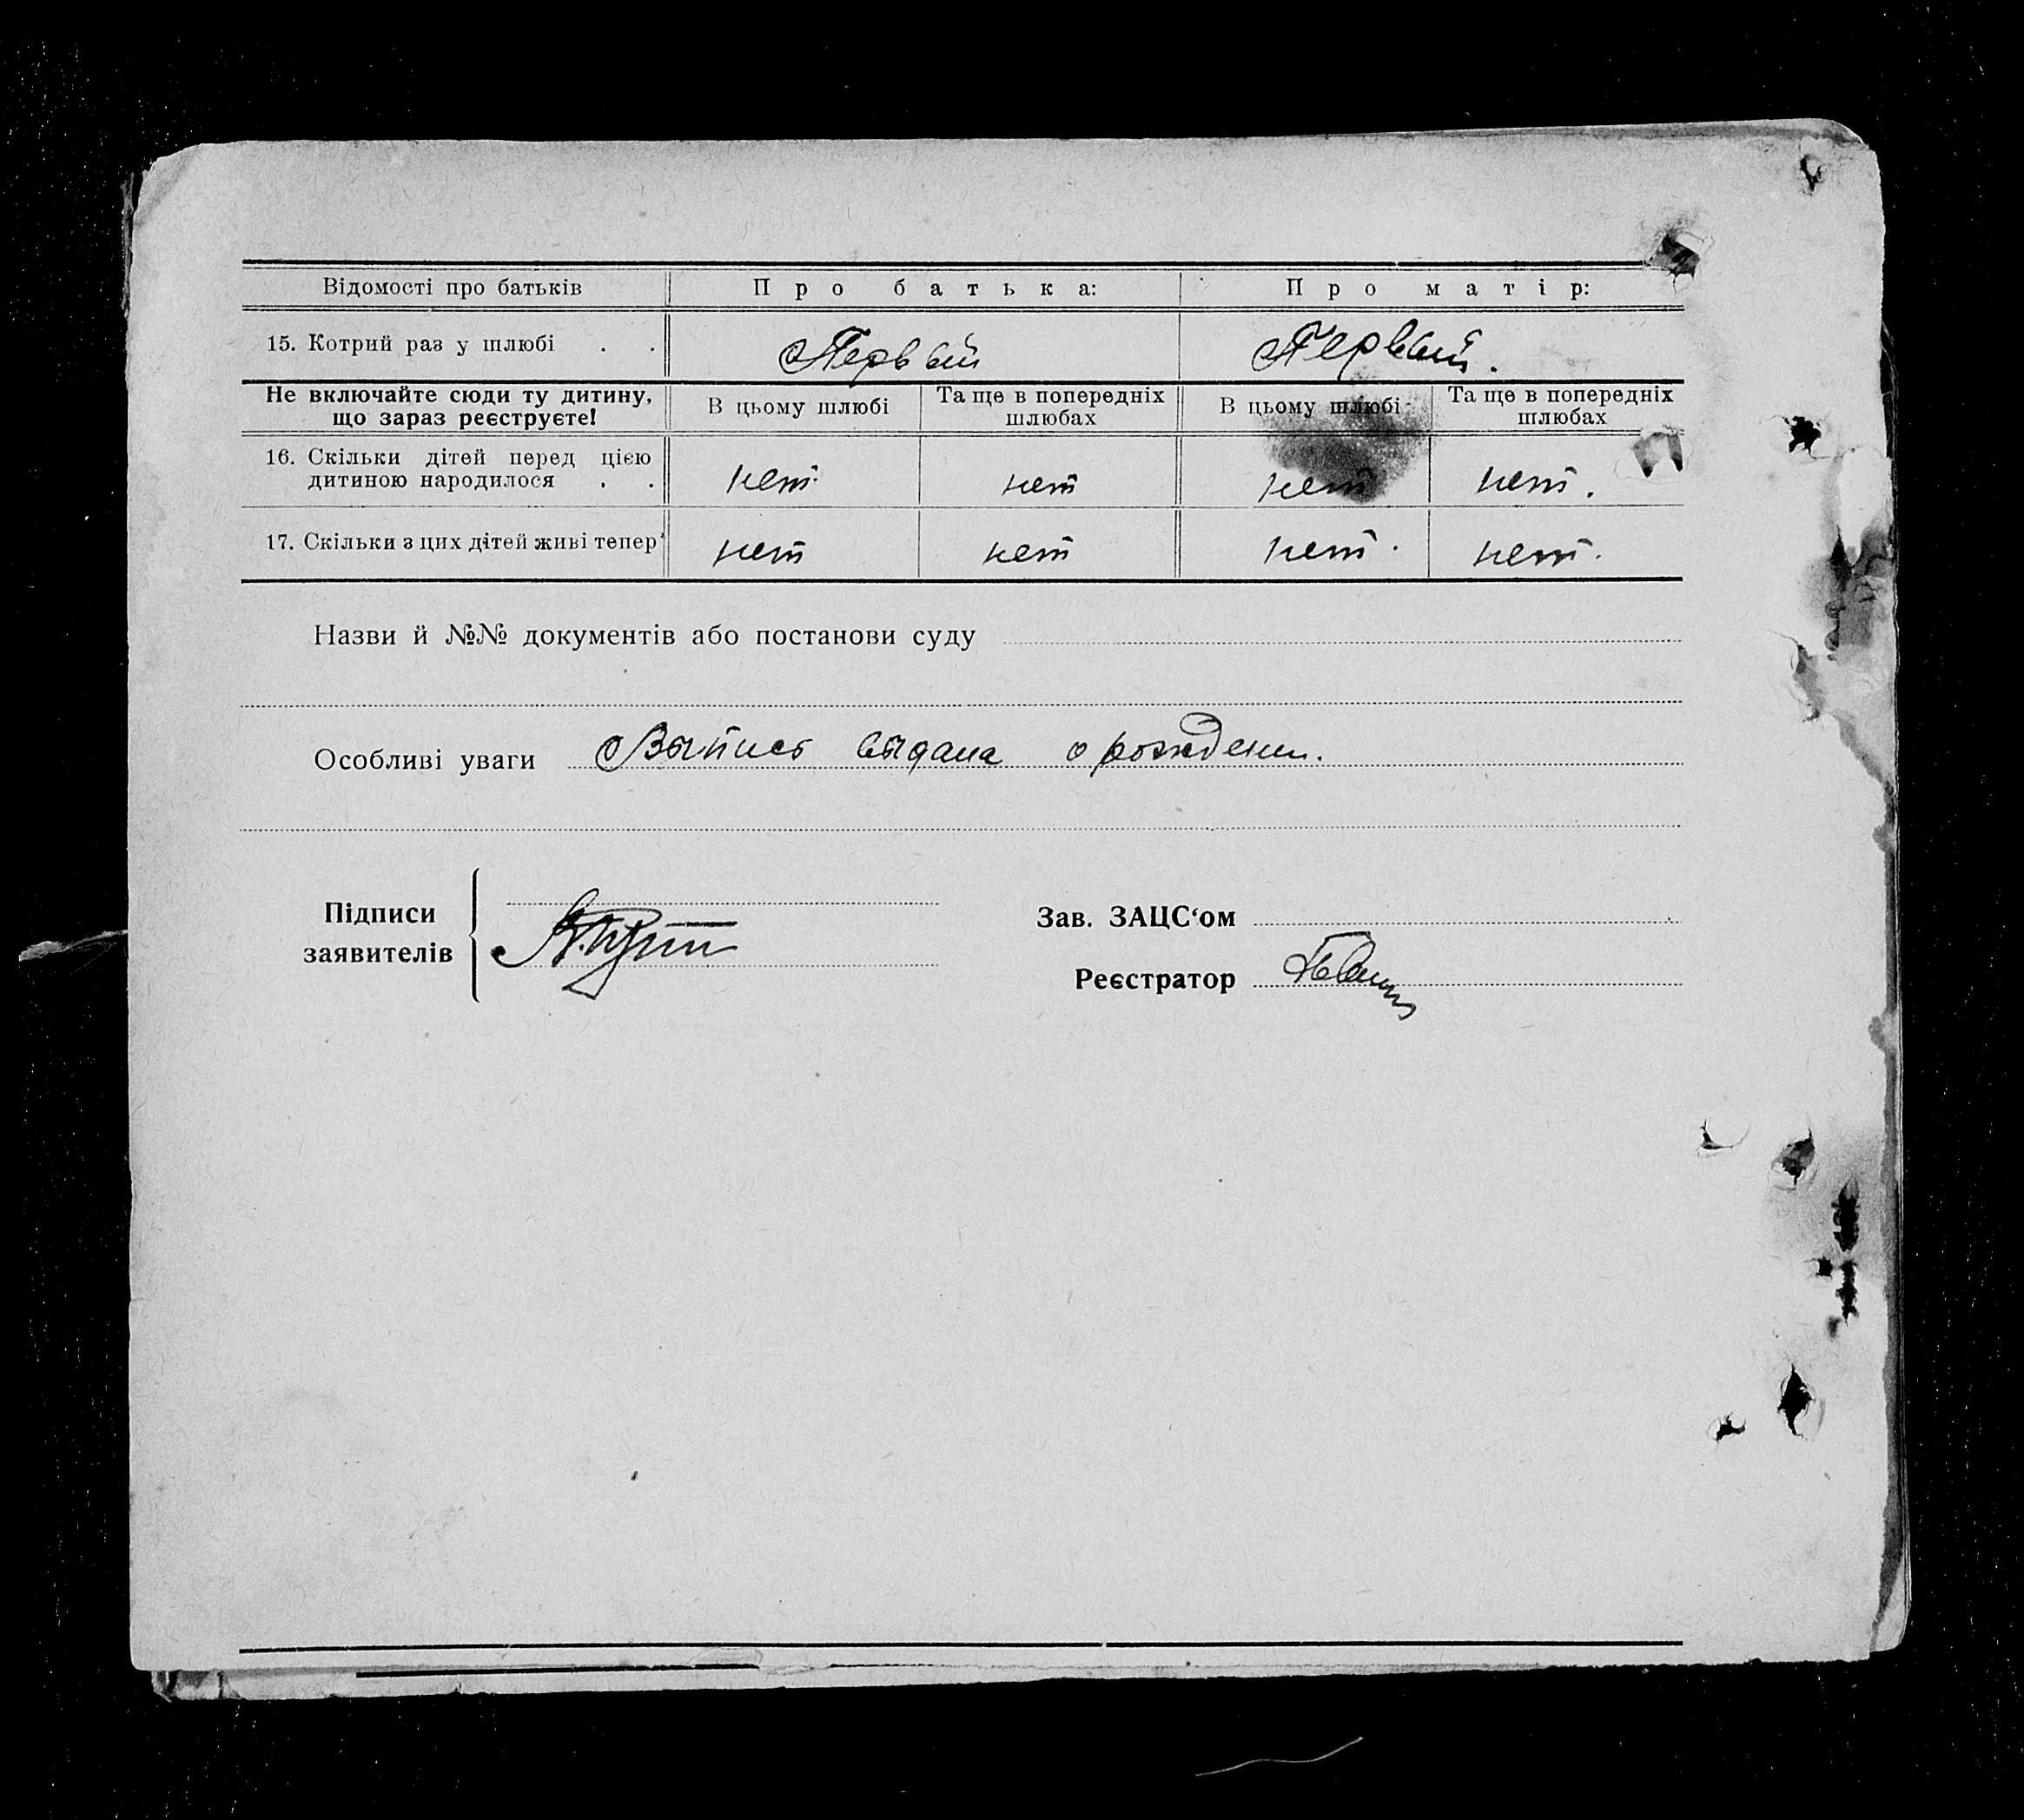 Відомості про батьків Про батька: Про матір:
15. Котрий раз у шлюбі . . Первый Первый.
Не включайте сюди ту дитину, що зараз реєструєте! В цьому шлюбі Та ще в попередніх шлюбах В цьому шлюбі Та ще в попередніх шлюбах
16. Скільки дітей перед цією
дитиною народилося . . нет нет нет нет.
17. Скільки з цих дітей живі тепер нет нет нет. нет.
Назви й №№ документів або постанови суду
Особливі уваги Выпись выдана о рождении.
Підписи
заявителів
Зав. ЗАЦС‘ом
Реєстратор